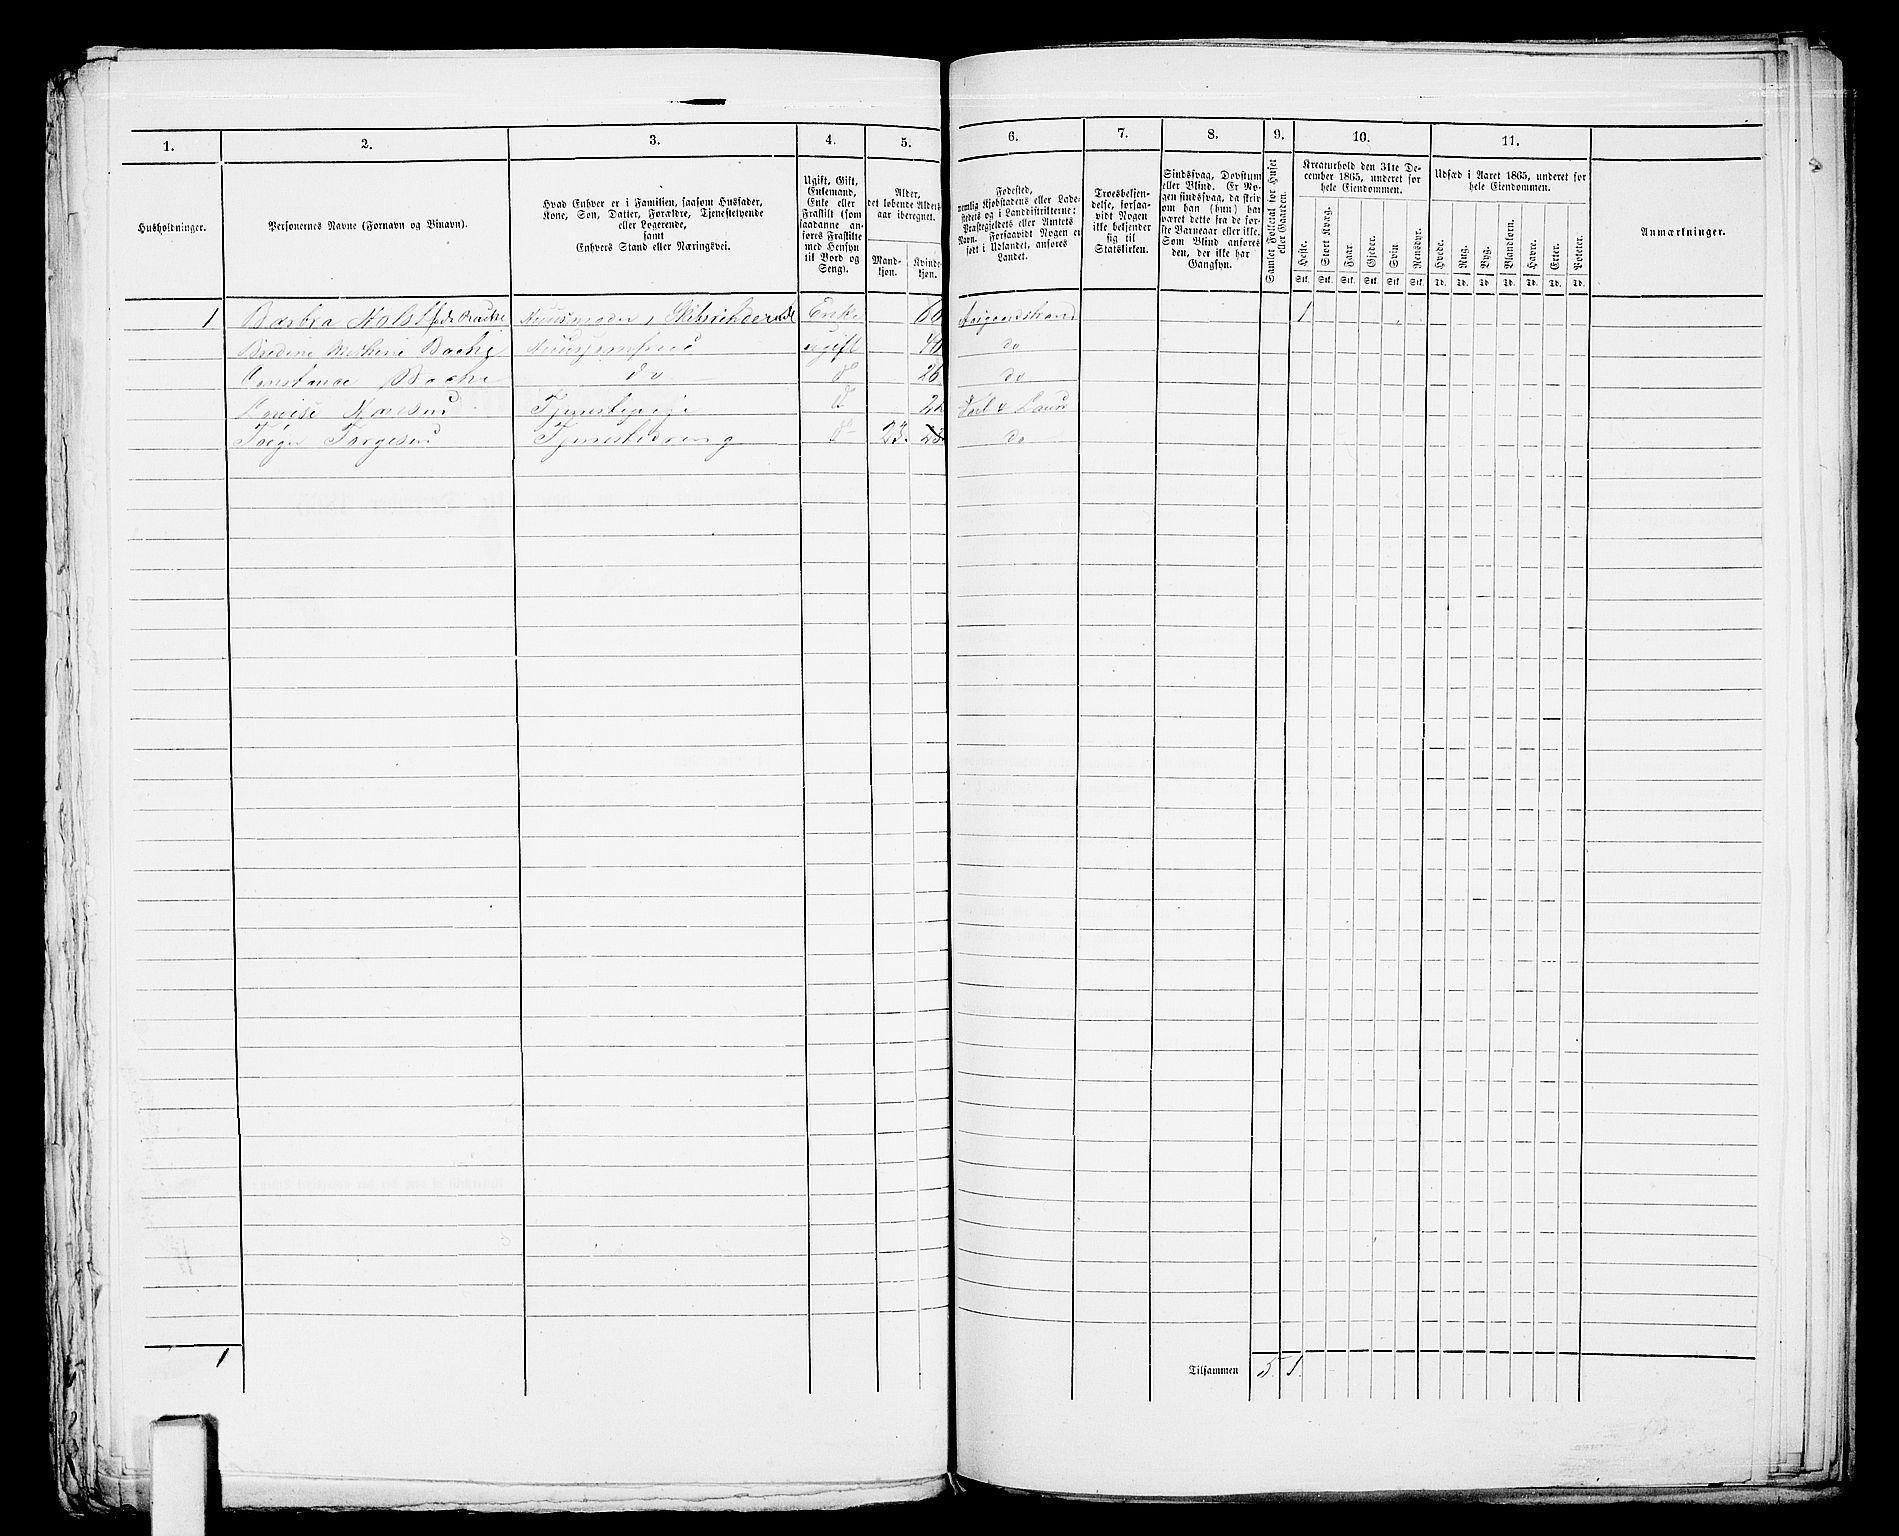 1. 2. 3. 4. 5. 6. 7. 8. 9. 10. 11.
Husholdninger.
Personernes Navne (Fornavn og Binavn).
Hvad Enhver er i Familien, saasom Husfader,
Kone, Søn, Datter, Forældre, Tjenestetyende
eller Logerende,
samt
Enhvers Stand eller Næringsvei.
Ugift, Gift,
Enkemand,
Enke eller
Fraskilt (som
saadanne an-
føres Fraskilte
med Hensyn
til Bord og
Seng).
Alder,
det løbende Alders-
aar iberegnet.
Mand-
kjøn.
Kvinde-
kjøn.
Fødested,
nemlig Kjøbstadens eller Lade-
stedets og i Landdistrikterne:
Præstegjeldets eller Amtets
Navn. Forsaavidt Nogen er
født i Udlandet, anføres
Landet.
Troesbekjen-
delse, forsaa-
vidt Nogen
ikke bekjender
sig til
Statskirken.
Sindssvag, Døvstum
eller Blind. Er No-
gen sindssvag, da skriv
om han (hun) har
været dette fra de før-
ste Barneaar eller ikke.
Som Blind anføres
den, der ikke har
Gangsyn.
Samlet Folketal for Huset
eller Gaarden.
Kreaturhold den 31te De-
cember 1865, underet for
hele Eiendommen.
Heste. Stort Kvæg. Faar. Gjeder. Svin. Rensdyr.
Stk. Stk. Stk. Stk. Stk. Stk.
Udsæd i Aaret 1865, underet for
hele Eiendommen.
Hvede. Rug. Byg. Blandkorn. Havre. Erter. Poteter.
Td. Td. Td. Td. Td. Td. Td.
Anmærkninger.
1 Barbra Holst født Bache Huusmoder, Skibsrhederinde Enke 1
Bredine Bache Huusjomfrue ugift 40 do
Constance Bache do do 26 do
Lovise Tjenestepige do
Torgersen Tjenestedreng do 23. 23 do
1
Tilsammen 5 1.